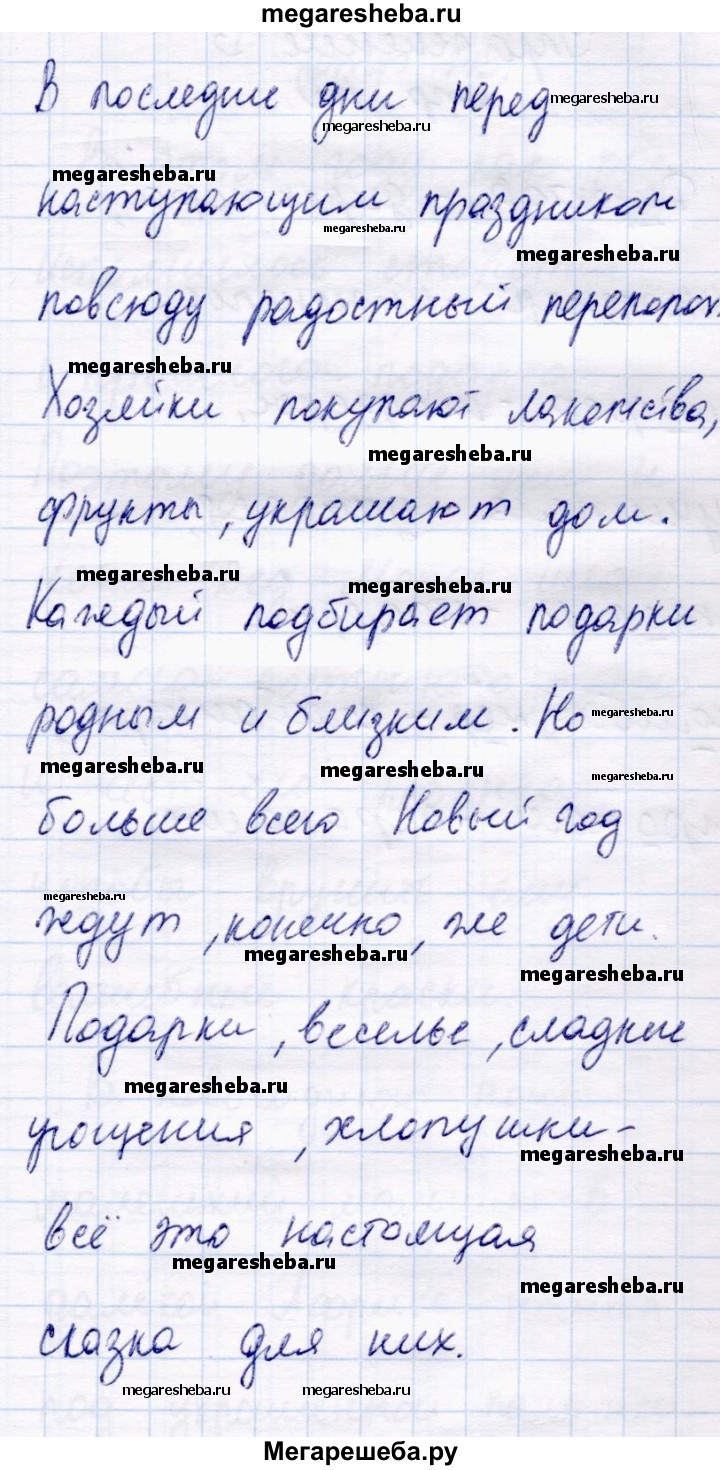 megaresheba.ru
В последние дни перед megaresheba.ru
megaresheba.ru
megaresheba.ru
наступающим праздником
megaresheba.ru
megaresheba.ru
повсюду радостный переполох.
megaresheba.ru
Хозяйки покупают лакомства,
megaresheba.ru
фрукты, украшают дом.
megaresheba.ru
megaresheba.ru
Каждый подбирает подарки
родным и близким. Но megaresheba.ru
megaresheba.ru
megaresheba.ru
megaresheba.ru
больше всего Новый год
megaresheba.ru
ждут, конечно, же дети.
megaresheba.ru
megaresheba.ru
Подарки, веселье, сладкие
megaresheba.ru
угощения, хлопушки -
megaresheba.ru
всё это настоящая
megaresheba.ru
megaresheba.ru
сказка для них.
megaresheba.ru megaresheba.ru
Мегарешеба.ру